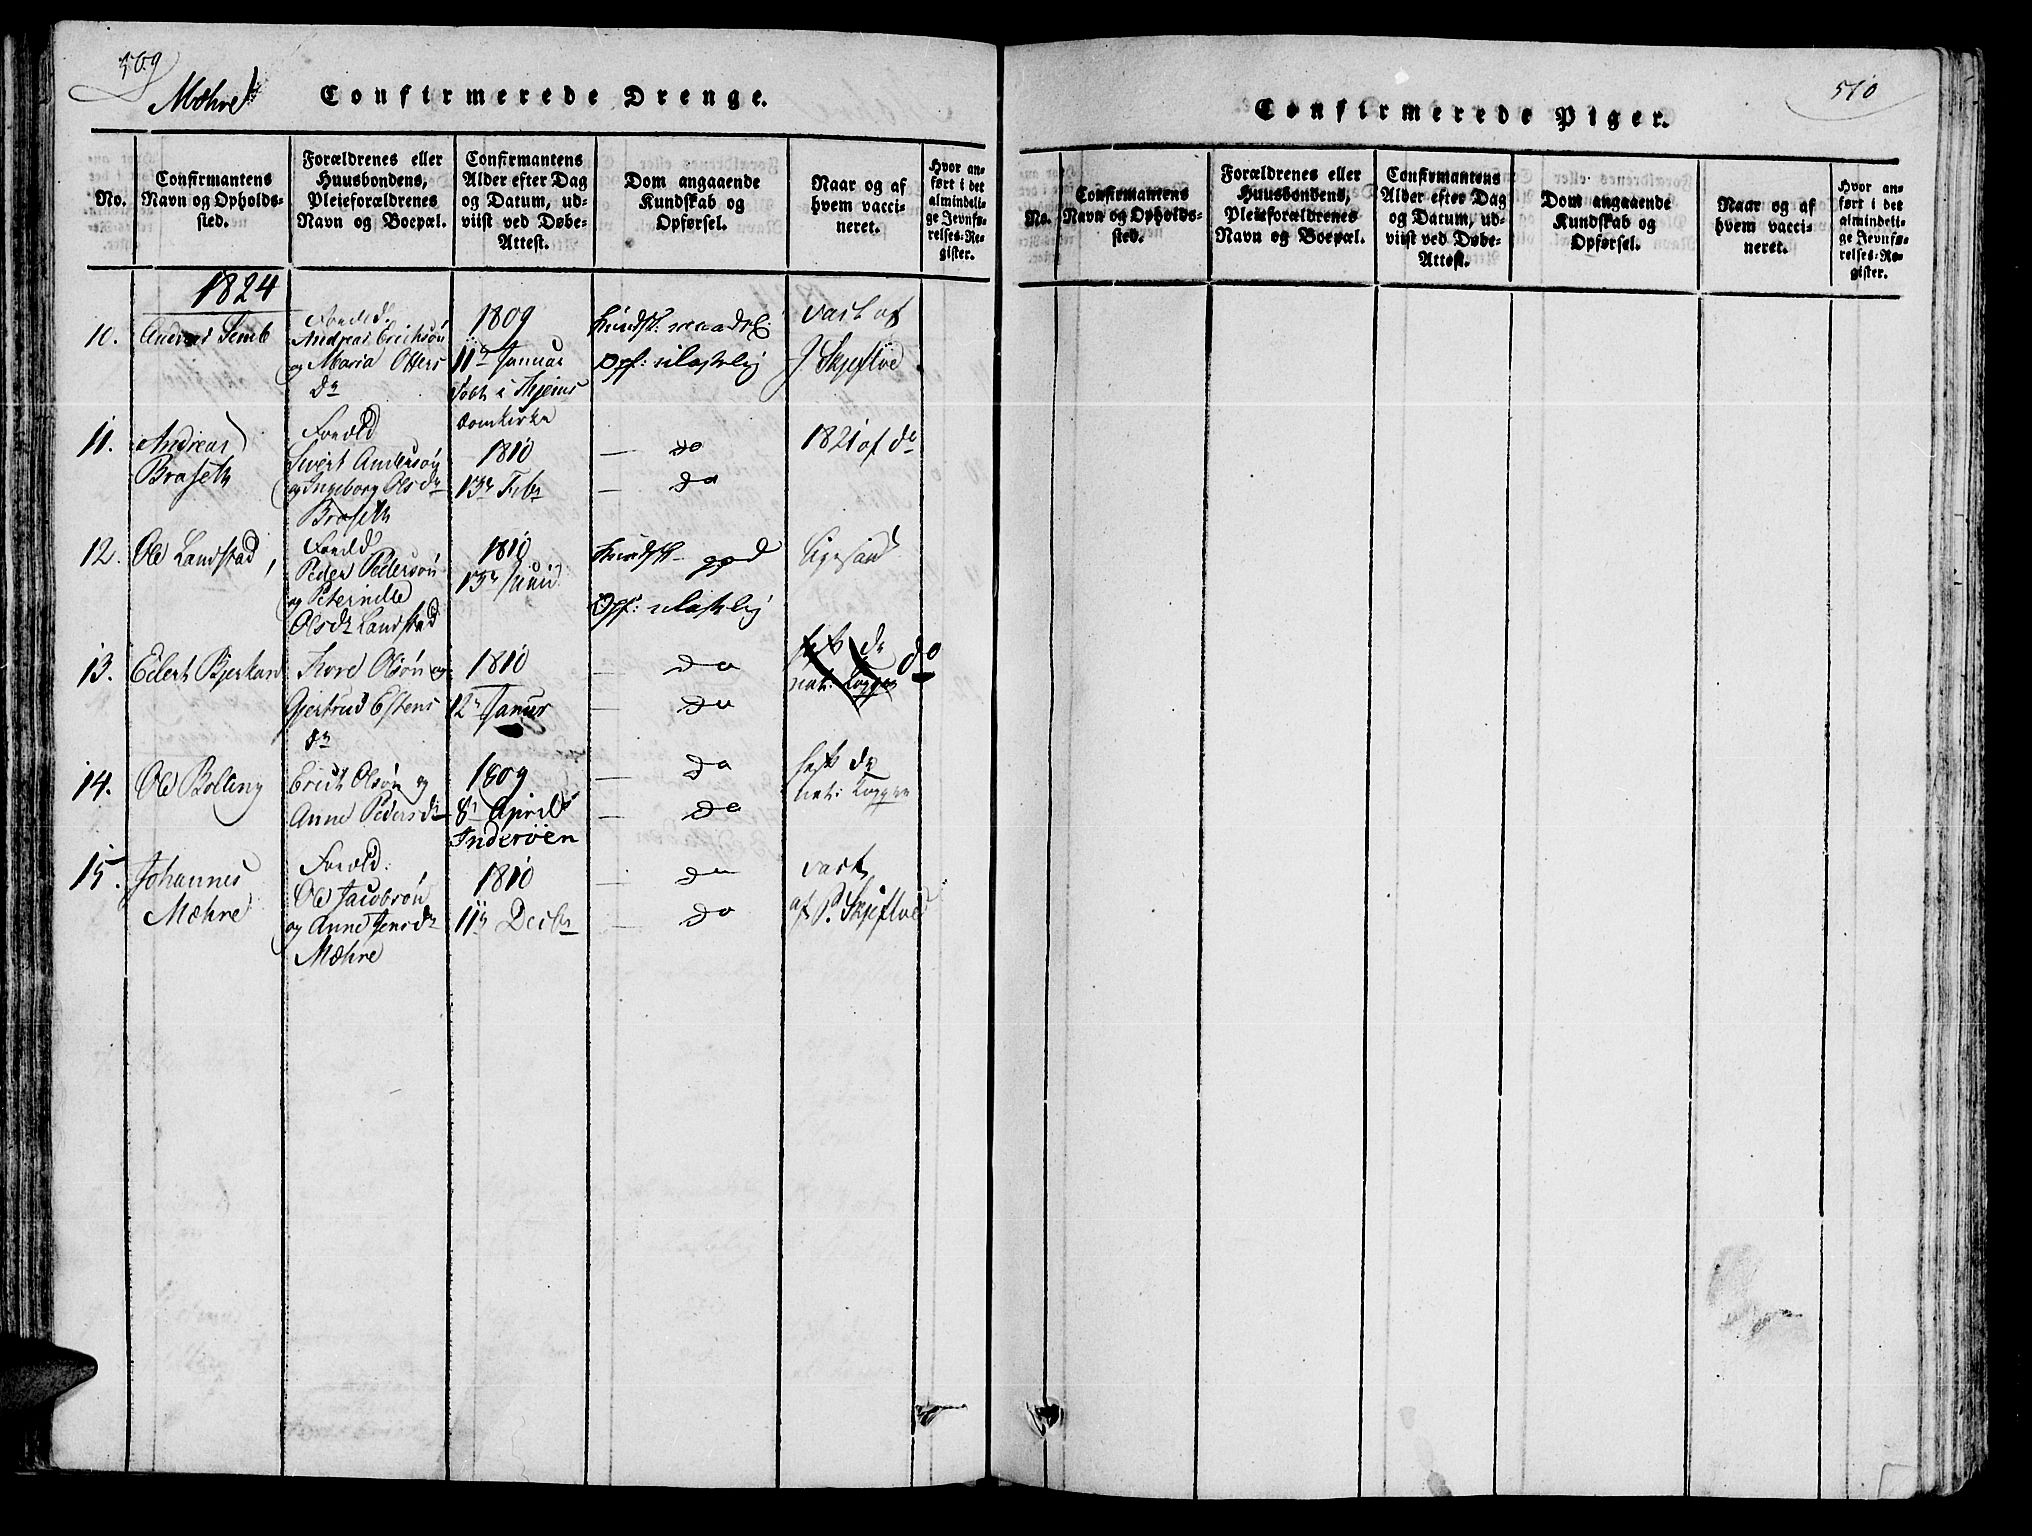 509
Mæhre
Confirmerede Drenge.
No.
Confirmantens
Navn og Opholds-
sted.
Forældrenes eller
Huusbondens,
Pleieforældrenes
Navn og Boepæl.
Confirmantens
Alder efter Dag
og Datum, ud-
viist ved Døbe-
Attest.
Dom angaaende
Kundskab og
Opførsel.
Naar og af
hvem vacci-
neret.
Hvor an-
ført i det
almindeli-
ge Jevnfø-
relses-Re-
gister.
1824
10.
Semb
Andreas Erichsøn
og Maria Ollers
Dr
1809
11te Januar
døbt i Thjems
domkirke
Opf: ulastelig
vact af
J Skjeflve
11.
Andreas
Braseth
Foreld
Sivert Andersøn
og Ingeborg Olsdr
Braseth
1810
13de Febr
— do
— do
1821 af do
12.
Ole Landstad,
Foreld
Peder Pedersøn
og Peternille
Olsdr Landstad
1810
13de Juni
Kundsk. god
Opf: ulastelig
Ligesaa
13.
Edert Bjerkan
Thore Olsøn og
Gjertrud Estens
dr
1810
12te Janur
— do
— do
do
14.
Ole Bolling
Erich Olsøn og
Anne Pedersdr
1809
8de April
Inderøen
— do
— do
nat: Kopper
15.
Johannes
Mæhre
Foreld:
Ole Jacobsøn
og Anne Jensdr
Mæhre
1810
11te Decbr
— do
— do
vact
af P. Skjeflve
510
Confirmerede Piger.
No.
Confirmantens
Navn og Opholds-
sted.
Forældrenes eller
Huusbondens,
Pleieforældrenes
Navn og Boepæl.
Confirmantens
Alder efter Dag
og Datum, ud-
viist ved Døbe-
Attest.
Dom angaaende
Kundskab og
Opførsel.
Naar og af
hvem vacci-
neret.
Hvor an-
ført i det
almindeli-
ge Jevnfø-
relses-Re-
gister.